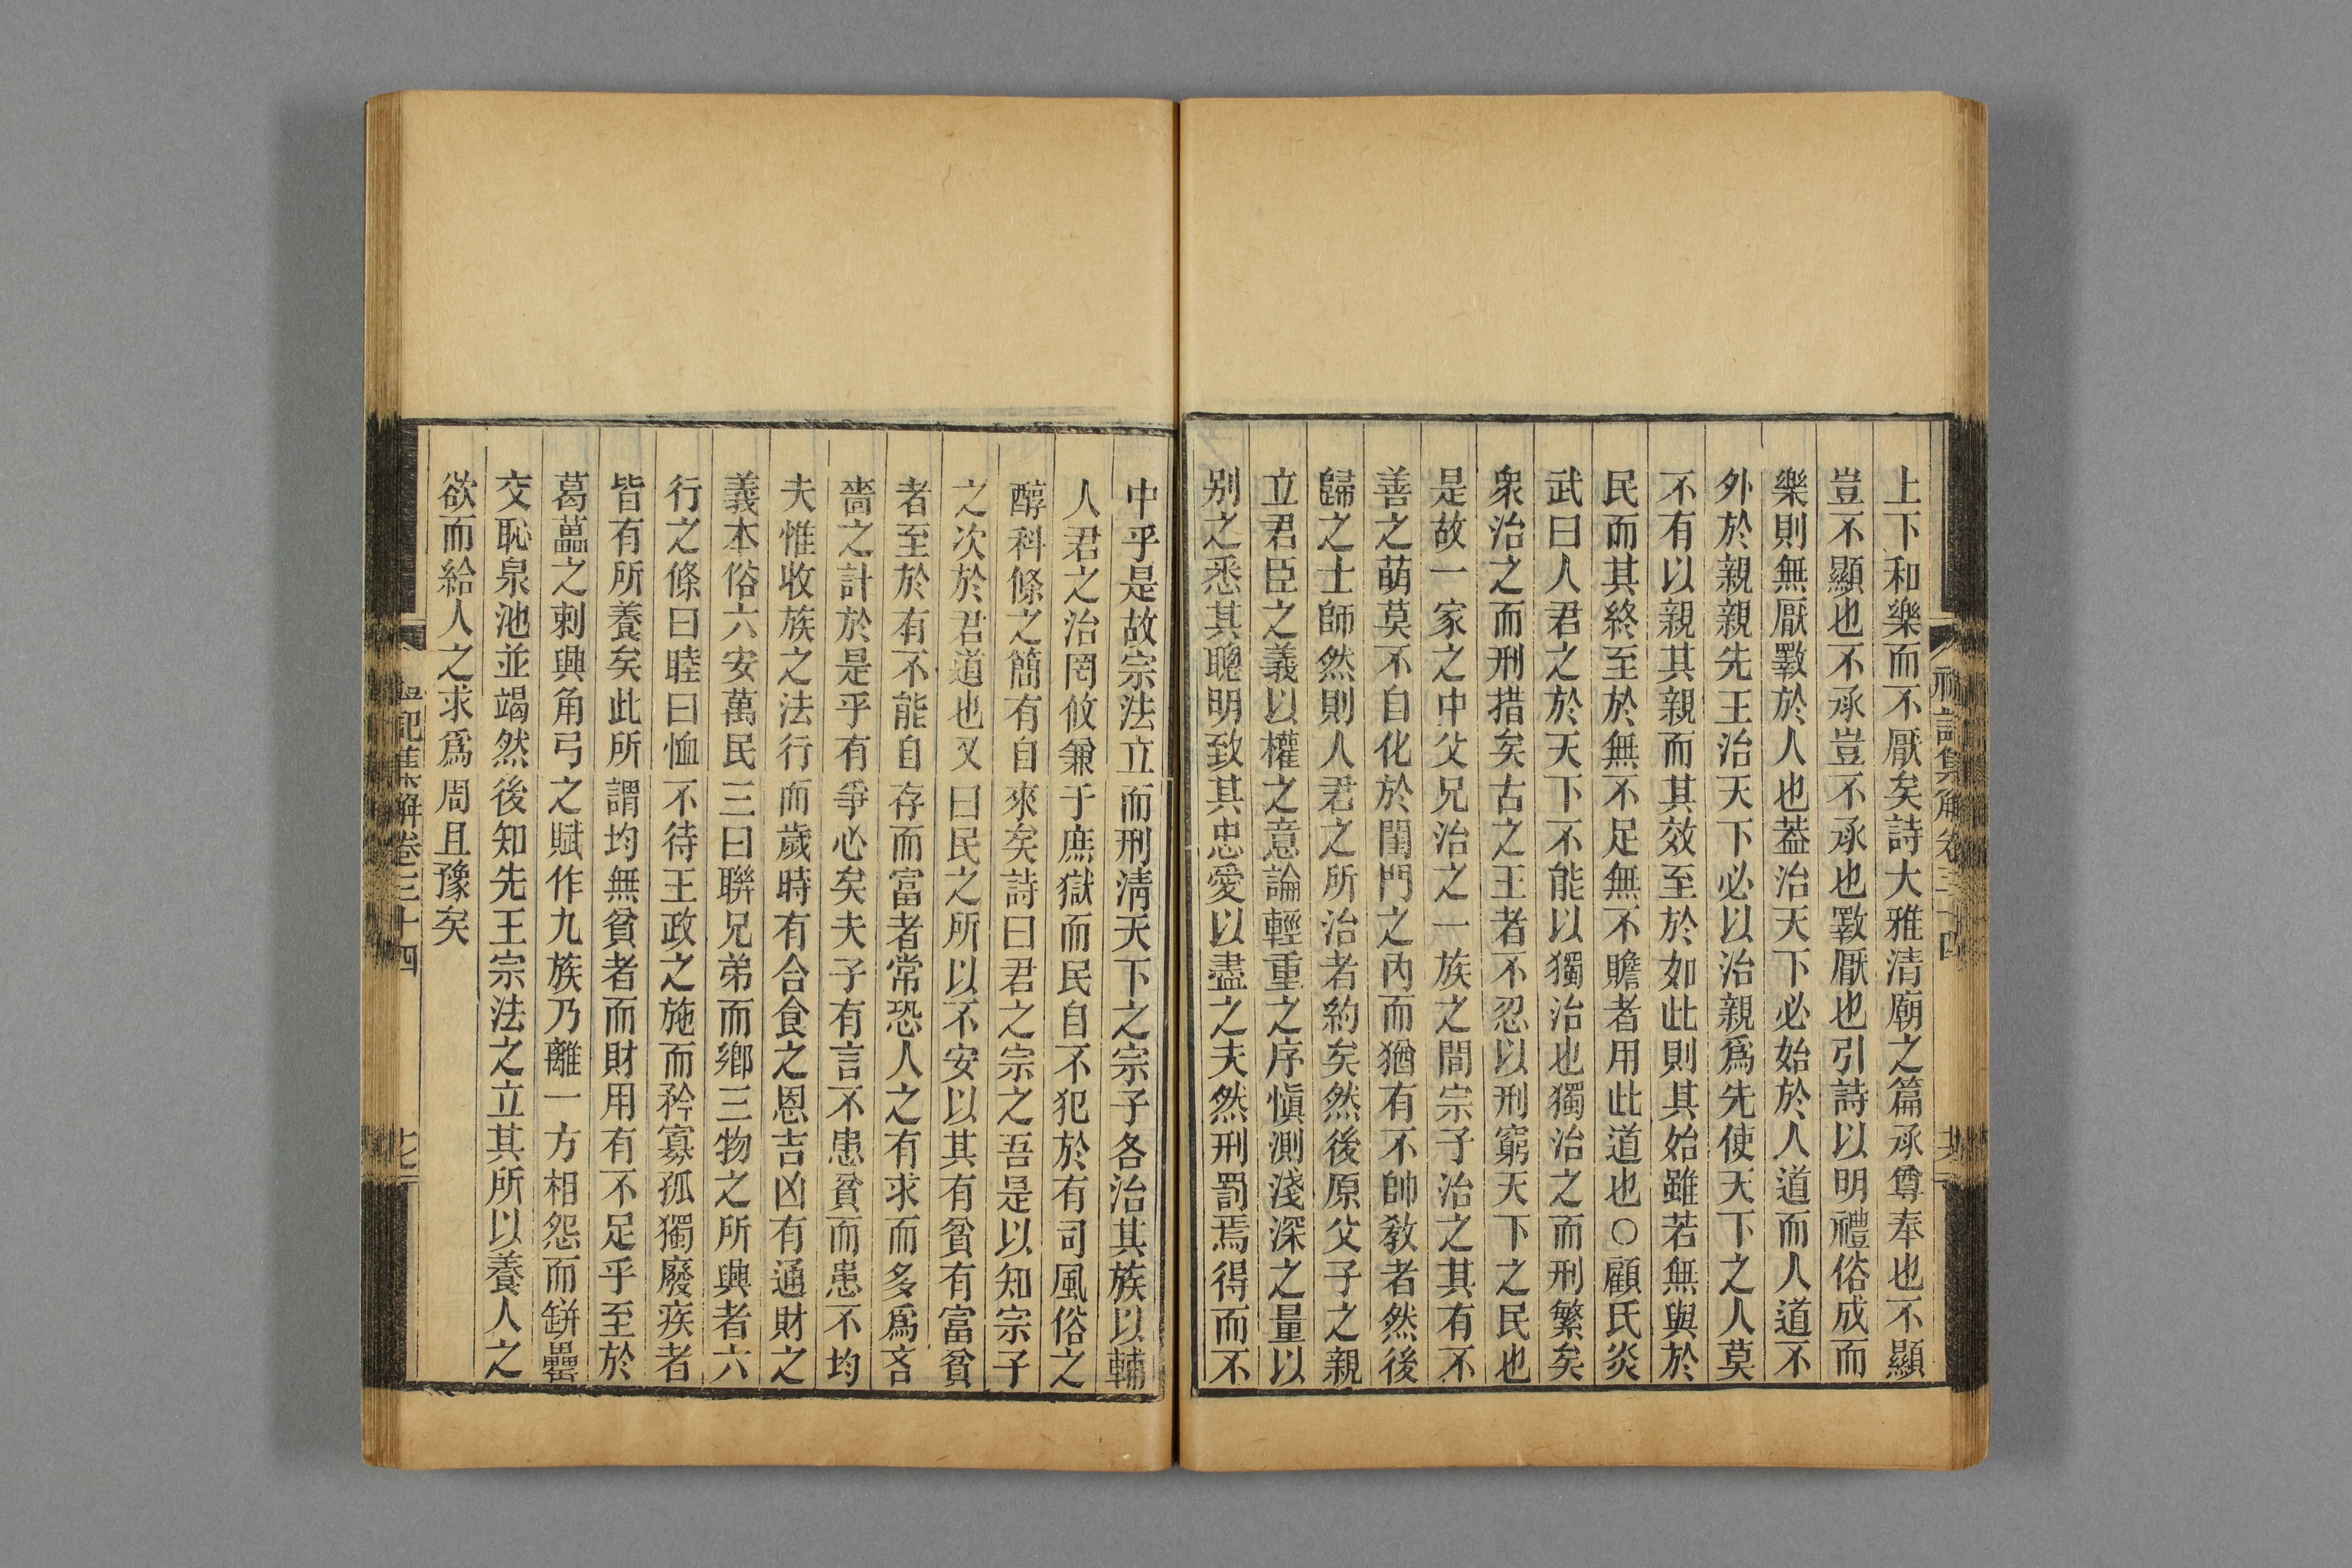 上下和樂而不厭矣詩大雅清廟之篇承尊奉也不顯
豈不顯也不承豈不承也斁厭也引詩以明禮俗成而
樂則無厭斁於人也葢治天下必始於人道而人道不
外於親親先王治天下必以治親爲先使天下之人莫
不有以親其親而其效至於如此則其始雖若無與於
民而其終至於無不足無不贍者用此道也○顧氏炎
武曰人君之於天下不能以獨治也獨治之而刑繁矣
衆治之而刑措矣古之王者不忍以刑窮天下之民也
是故一家之中父兄治之一族之間宗子治之其有不
善之萌莫不自化於閨門之內而猶有不帥敎者然後
歸之士師然則人君之所治者約矣然後原父子之親
立君臣之義以權之意論輕重之序愼測淺深之量以
別之悉其聰明致其忠愛以盡之夫然刑罰焉得而不
中乎是故宗法立而刑淸天下之宗子各治其族以輔
人君之治罔攸兼于庶獄而民自不犯於有司風俗之
醇科條之簡有自來矣詩曰君之宗之吾是以知宗子
之次於君道也又曰民之所以不安以其有貧有富貧
者至於有不能自存而富者常恐人之有求而多爲吝
嗇之計於是乎有爭心矣夫子有言不患貧而患不均
夫惟收族之法行而歲時有合食之恩吉凶有通財之
義本俗六安萬民三曰聯兄弟而鄉三物之所興者六
行之條曰睦曰恤不待王政之施而矜寡孤獨廢疾者
皆有所養矣此所謂均無貧者而財用有不足乎至於
葛藟之刺興角弓之賦作九族乃離一方相怨而缾罍
交恥泉池並竭然後知先王宗法之立其所以養人之
欲而給人之求爲周且豫矣
記集解卷三十四